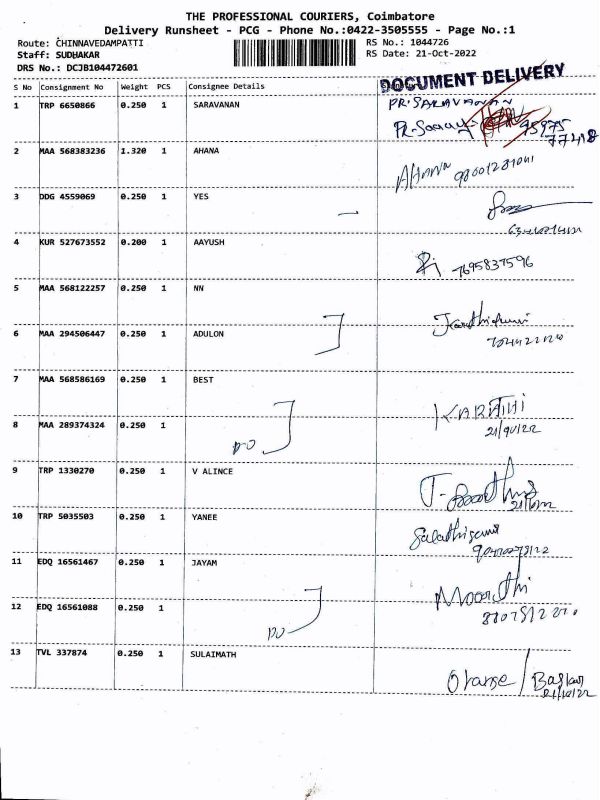 THE PROFESSIONAL COURIERS, Coimbatore
Delivery Runsheet - PCG - Phone No.:0422-3505555 - Page No.:1
Route: CHINNAVEDAMPATTI RS No.: 1044726
Staff: SUDHAKAR RS Date: 21-Oct-2022
DRS No.: DCJB104472601
S No Consignment No Weight PCS Consignee Details DOCUMENT DELIVERY
1 TRP 6650866 0.250 1 SARAVANAN PR.SARAVANAN
2 MAA 568383236 1.320 1 AHANA AHANA
3 DDG 4559069 0.250 1 YES
4 KUR 527673552 0.200 1 AAYUSH 7695837596
5 MAA 568122257 0.250 1 NN
6 MAA 294506447 0.250 1 ADULON
7 MAA 568586169 0.250 1 BEST
8 MAA 289374324 0.250 1 DO KARTHI
9 TRP 1330270 0.250 1 V ALINCE
10 TRP 5035503 0.250 1 YANEE
11 EDQ 16561467 0.250 1 JAYAM
12 EDQ 16561088 0.250 1 DO Moorthi
13 TVL 337874 0.250 1 SULAIMATH
Orange / Baskar
21/10/22